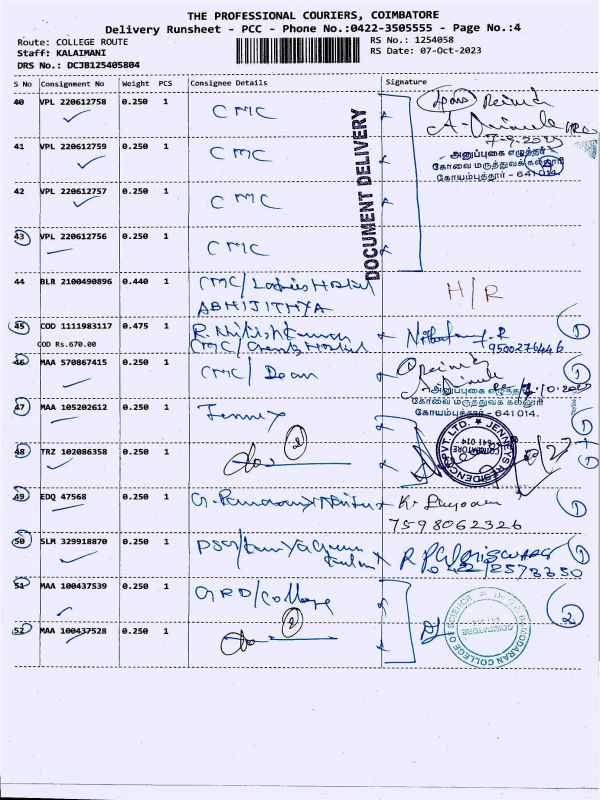 THE PROFESSIONAL COURIERS, COIMBATORE
Delivery Runsheet - PCC - Phone No.:0422-3505555 - Page No.:4
Route: COLLEGE ROUTE
RS No.: 1254058
Staff: KALAIMANI
RS Date: 07-Oct-2023
DRS No.: DCJB125405804
S No Consignment No Weight PCS Consignee Details Signature
40 VPL 220612758 0.250 1 CMC
41 VPL 220612759 0.250 1 CMC
அனுப்புகை எழுத்தர்
கோவை மருத்துவக் கல்லூரி
கோயம்புத்தூர் - 641014.
42 VPL 220612757 0.250 1 CMC
DOCUMENT DELIVERY
43 VPL 220612756 0.250 1 CMC
44 BLR 2100490896 0.440 1 CMC/Ladies Hostel H/R
ABHIJITHYA
45 COD 1111983117 0.475 1 R. 1
COD Rs.670.00 CMC/Gents Hostel 9500276446
46 MAA 570867415 0.250 1 CMC/Dean 1
அனுப்புகை எழுத்தர்
கோவை மருத்துவக் கல்லூரி
கோயம்புத்தூர் - 641014.
47 MAA 105202612 0.250 1 Jenney 1
48 TRZ 102086358 0.250 1 do 2 1
JENNEYS RESIDENCY PVT. LTD.
COIMBATORE
641 014
49 EDQ 47568 0.250 1 G. K. 1
7598062326
50 SLM 329918870 0.250 1 PSG 1
0422/2573350
51 MAA 100437539 0.250 1 GRD/College 2
52 MAA 100437528 0.250 1 do 2
DAMODARAN COLLEGE OF SCIENCE
COIMBATORE